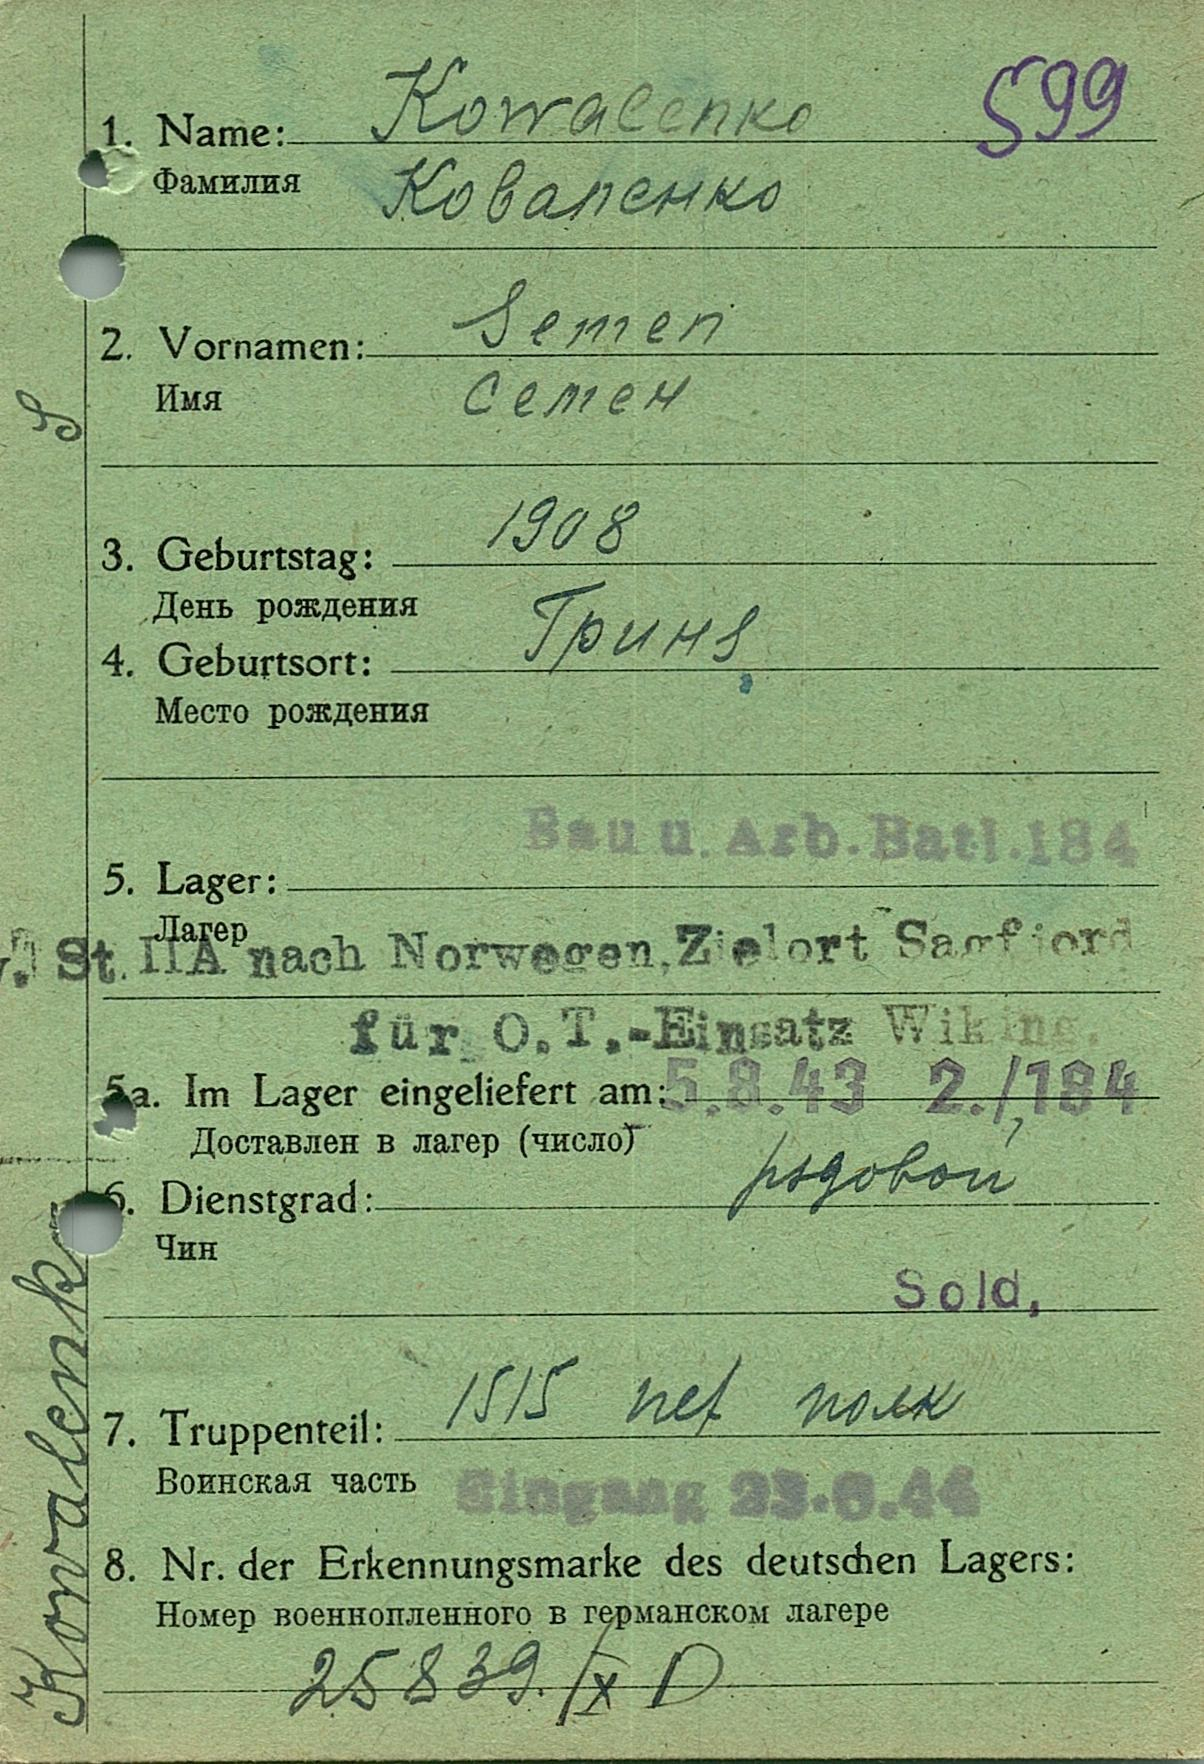 599
1. Name: Kowalenko
Фамилия Коваленко
2. Vornamen: Semen
Имя Семен
S
3. Geburtstag: 1908
День рождения
4. Geburtsort: Гриня
Место рождения
Bau u. Arb.Batl.184
5. Lager:
Лагер
v. St. IIA nach Norwegen, Zielort Sagfjord
für O.T.-Einsatz Wiking.
5a. Im Lager eingeliefert am: 5.8.43 2./184
Доставлен в лагер (число)
6. Dienstgrad: рядовой
Чин
Sold.
7. Truppenteil: 1515 полк
Воинская часть Eingang 44
8. Nr. der Erkennungsmarke des deutschen Lagers:
Номер военнопленного в германском лагере
25839./IX D
Kowalenko